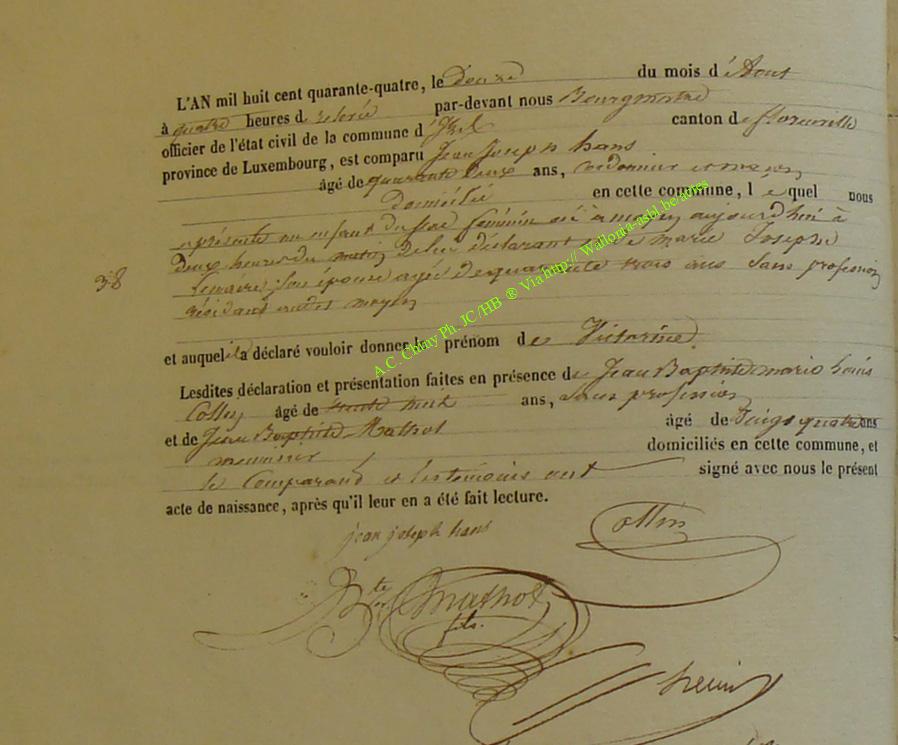 L'AN mil huit cent quarante-quatre, le Douze du mois d'Aout
à quatre heures d relevée par-devant nous Bourgmestre
officier de l'état civil de la commune d'Izel canton de florenville
province de Luxembourg, est comparu Jean Joseph hans
âgé de quarante Deux ans, Cordonnier
domicilié en cette commune, l e quel nous
a présenté un enfant du sexe féminin né à moyen aujourd'hui à
38
Deux heures du matin de lui déclarant et de marie Joseph
Lemaire, Son épouse agée de quarante trois ans Sans profession
résidant moyen
et auquel il a déclaré vouloir donner le prénom de Victorine
Lesdites déclaration et présentation faites en présence de Jean Baptiste
âgé de trente huit ans, Sans profession
et de Jean Baptiste Mathot âgé de vingt quatre ans
meunier domiciliés en cette commune, et
le Comparant et les temoins ont signé avec nous le présent
acte de naissance, après qu'il leur en a été fait lecture.
jean joseph hans
Bte Mathot
fils.
A.C. Chiny Ph. JC/HB ® Via http:// Wallonia-asbl.be/actes